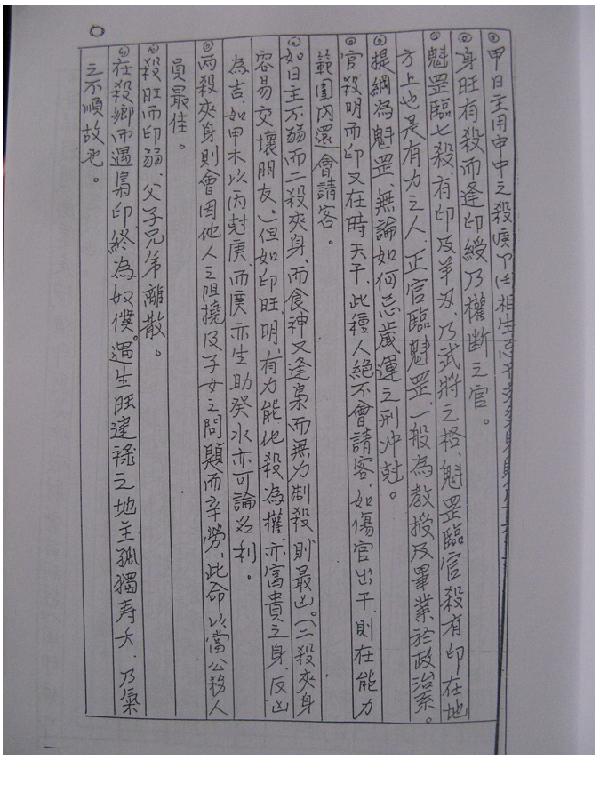 甲日主用申中之殺
身旺有殺而逢印綬乃權斷之官。
魁罡臨七殺、有印及羊刃、乃武將之格、魁罡臨官殺有印在地
方上也是有力之人、正官臨魁罡、一般為教授及畢業於政治系。
提綱為魁罡、無論如何忌歲運之刑沖尅。
官殺明而印又在時天干、此種人絕不會請客、如傷官出干、則在能力
範圍內還會請客。
如日主不弱而二殺夾身、而食神又逢梟而無力制殺則最凶。(二殺夾身
容易交壞朋友、)但如印旺明、有力能化殺為權、亦富貴之身、反凶
為吉、如甲木以丙尅庚、而庚亦生助癸水亦可論名利。
兩殺夾身則會因他人之阻撓及子女之問題而辛勞、此命以當公務人
員最佳。
殺旺而印弱、父子兄弟離散。
在殺鄉而遇梟印終為奴僕。遇生旺逢祿之地主孤獨壽夭、乃氣
之不順故也。